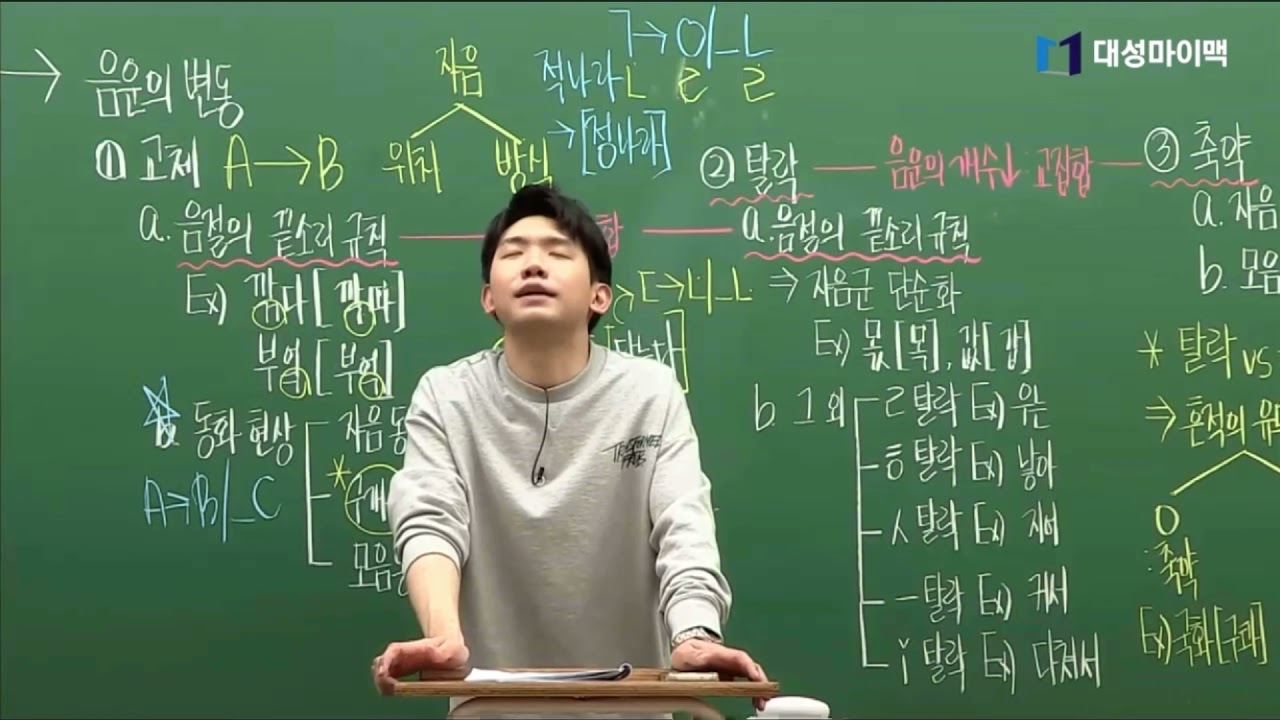 대성마이맥
→ 음운의 변동
① 교체 A→B
자음
위치 방식
ㄱ→ㅇ/_ㄴ
적나라
→[정나라]
a. 음절의 끝소리 규칙
Ex) 깎다[깍따]
부엌[부억]
b. 동화 현상
A→B/_C
자음동
* 구개
모음
ㄷ→ㄴ/_ㄴ
② 탈락 — 음운의 개수↓ 교집합 — ③ 축약
a. 음절의 끝소리 규칙
⇒ 자음군 단순화
Ex) 몫[목], 값[갑]
b. 그 외
ㄹ탈락 Ex) 우는
ㅎ탈락 Ex) 낳아
ㅅ탈락 Ex) 지어
ㅡ탈락 Ex) 커서
a. 자음
b. 모음
* 탈락 vs
⇒ 흔적의 유
O
:축약
Ex) 국화[구콰]